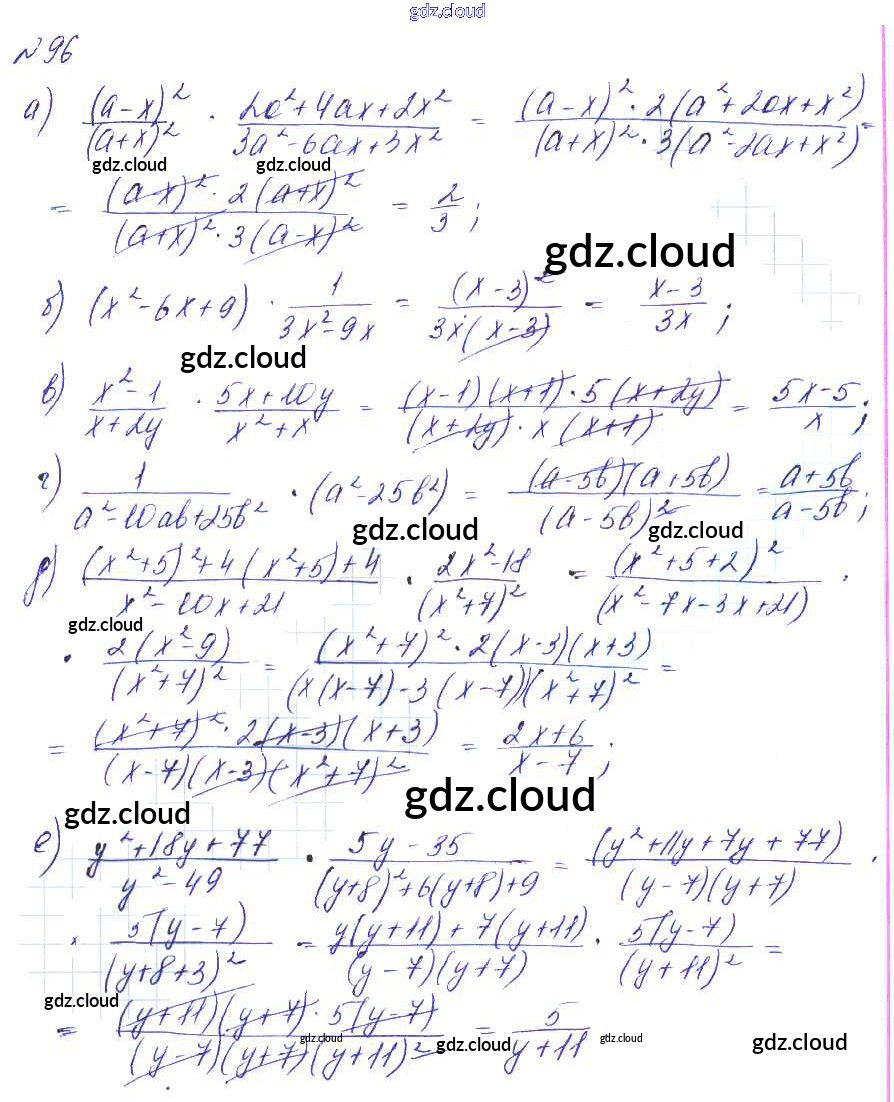 gdz.cloud
№96
а) (a-x)²/(a+x)² · (2a²+4ax+2x²)/(3a²-6ax+3x²) = ((a-x)²·2(a²+2ax+x²))/((a+x)²·3(a²-2ax+x²)) =
gdz.cloud gdz.cloud
= ((a-x)²·2(a+x)²)/((a+x)²·3(a-x)²) = 2/3;
gdz.cloud
б) (x²-6x+9) · 1/(3x²-9x) = (x-3)²/(3x(x-3)) = (x-3)/(3x);
gdz.cloud
в) (x²-1)/(x+2y) · (5x+10y)/(x²+x) = ((x-1)(x+1)·5(x+2y))/((x+2y)·x(x+1)) = (5x-5)/x;
г) 1/(a²-10ab+25b²) · (a²-25b²) = ((a-5b)(a+5b))/(a-5b)² = (a+5b)/(a-5b);
gdz.cloud gdz.cloud
д) ((x²+5)²+4(x²+5)+4)/(x²-10x+21) · (2x²-18)/(x²+7)² = (x²+5+2)²/(x²-7x-3x+21) ·
gdz.cloud
· 2(x²-9)/(x²+7)² = ((x²+7)²·2(x-3)(x+3))/((x(x-7)-3(x-7))(x²+7)²) =
= ((x²+7)²·2(x-3)(x+3))/((x-7)(x-3)(x²+7)²) = (2x+6)/(x-7);
gdz.cloud gdz.cloud
е) (y²+18y+77)/(y²-49) · (5y-35)/((y+8)²+6(y+8)+9) = (y²+11y+7y+77)/((y-7)(y+7)) ·
× 5(y-7)/(y+8+3)² = (y(y+11)+7(y+11))/((y-7)(y+7)) · 5(y-7)/(y+11)² =
gdz.cloud
= ((y+11)(y+7)·5(y-7))/((y-7)(y+7)(y+11)²) = 5/(y+11)
gdz.cloud gdz.cloud gdz.cloud gdz.cloud